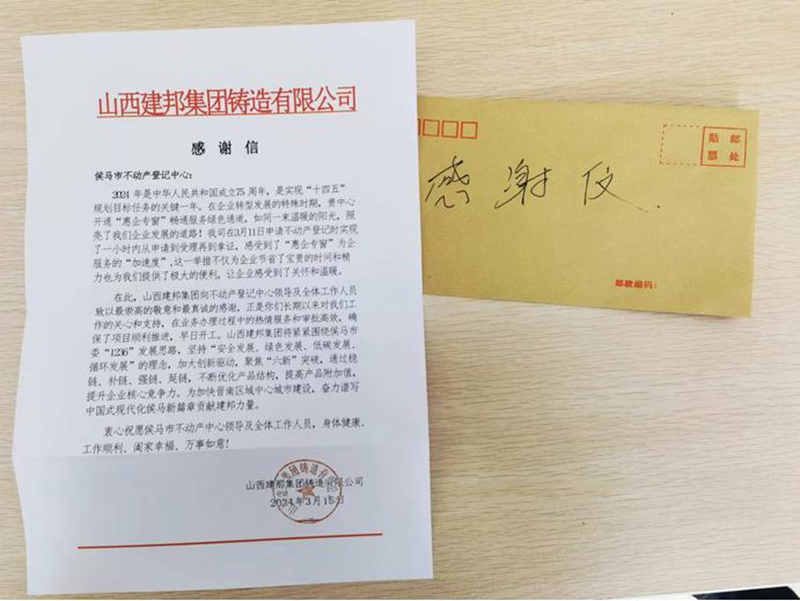 山西建邦集团铸造有限公司
感谢信
侯马市不动产登记中心：
2024 年是中华人民共和国成立75 周年，是实现“十四五”
规划目标任务的关键一年。在企业转型发展的特殊时期，贵中心
开通“惠企专窗”畅通服务绿色通道，如同一束温暖的阳光，照
亮了我们企业发展的道路！我司在3月11日申请不动产登记时实现
了一小时内从申请到受理再到拿证，感受到了“惠企专窗”为企
服务的“加速度”,这一举措不仅为企业节省了宝贵的时间和精
力也为我们提供了极大的便利，让企业感受到了关怀和温暖。
在此，山西建邦集团向不动产登记中心领导及全体工作人员
致以最崇高的敬意和最真诚的感谢，正是你们长期以来对我们工
作的关心和支持，在业务办理过程中的热情服务和审批高效，确
保了项目顺利推进，早日开工。山西建邦集团将紧紧围绕侯马市
委“1236”发展思路，坚持“安全发展、绿色发展、低碳发展、
循环发展”的理念，加大创新驱动，聚焦“六新”突破，通过稳
链、补链、强链、延链，不断优化产品结构，提高产品附加值，
提升企业核心竞争力。为加快晋南区域中心城市建设，奋力谱写
中国式现代化侯马新篇章贡献建邦力量。
衷心祝愿侯马市不动产中心领导及全体工作人员，身体健康、
工作顺利、阖家幸福、万事如意！
山西建邦集团铸造有限公司
2024年3月1日
贴 邮
票 处
感谢仪
邮政编码：